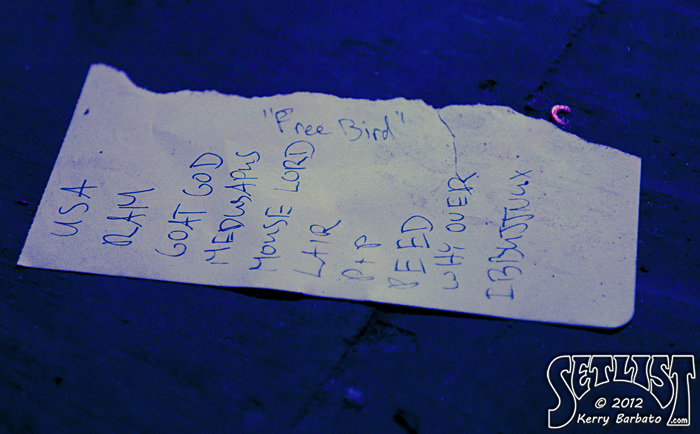 "Free Bird"
USA
RAM
GOAT GOD
MEDUSAPUS
MOUSE LORD
LAIR
P+P
DEED
WHY OVER
SETLIST
© 2012
Kerry Barbato .com